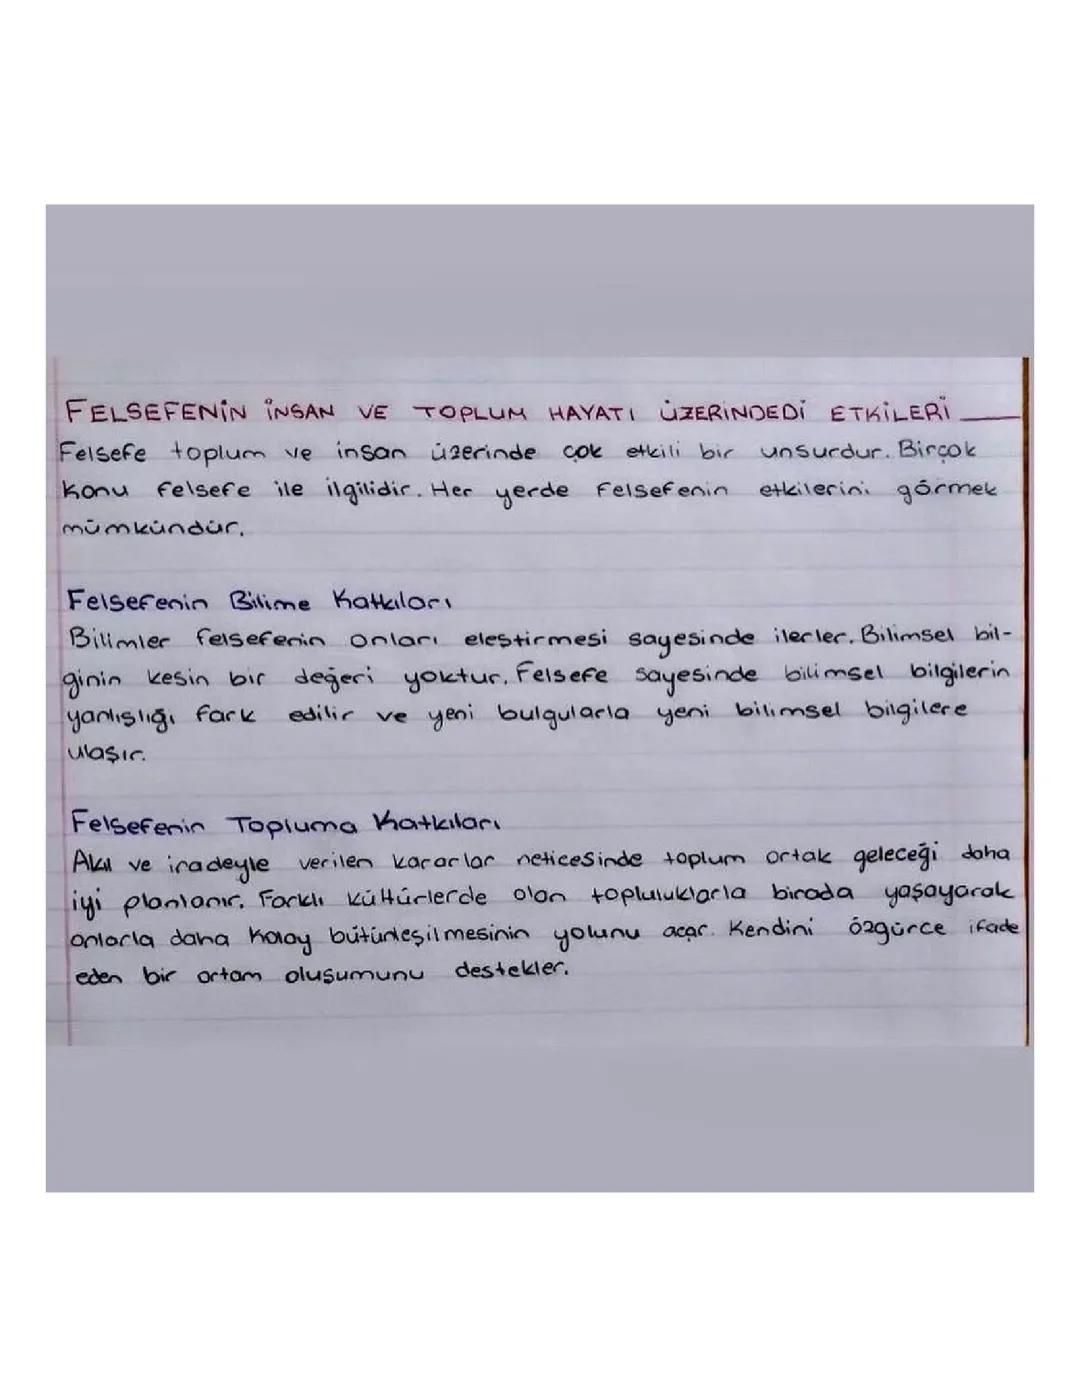 FELSEFENİN İNSAN VE TOPLUM HAYATI ÜZERİNDEDİ ETKİLERİ
Felsefe toplum ve insan üzerinde çok etkili bir unsurdur. Birçok
konu felsefe ile ilgilidir. Her yerde felsefenin etkilerini görmek
mümkündür.
Felsefenin Bilime Katkıları
Bilimler felsefenin onları eleştirmesi sayesinde ilerler. Bilimsel bil-
ginin kesin bir değeri yoktur. Felsefe sayesinde bilimsel bilgilerin
yanlışlığı fark edilir ve yeni bulgularla yeni bilimsel bilgilere
ulaşır.
Felsefenin Topluma Katkıları
Akıl ve iradeyle verilen kararlar neticesinde toplum ortak geleceği daha
iyi planlanır. Farklı kültürlerde olan topluluklarla birada yaşayarak
onlarla daha kolay bütünleşilmesinin yolunu açar. Kendini özgürce ifade
eden bir ortam oluşumunu destekler.